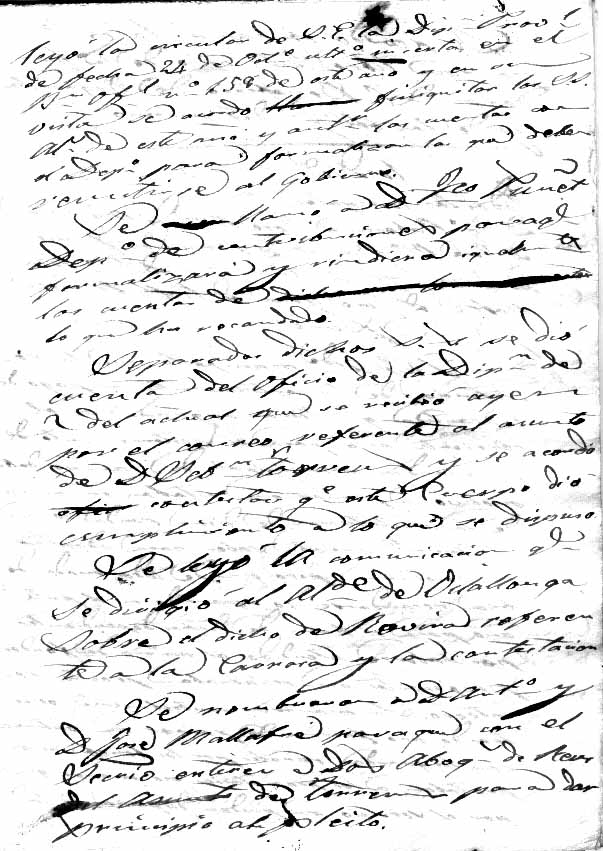 leyó la circular de S. E. la Dip.n Prov.l
de fecha 24 de Oct.e ult.o inserta en el
B.n Of.l n.o 158 de este año y en su
vista se acordó finiquitar los SS.
Al.s de este año y ant.r las cuentas con
el Dep.o para formalizar las que deben
remitirse al Gobierno.
Se llamó a D. Fco Puñet
Dep.o de contribuciones para q.e
formalizara y rindiera igualm.te
las cuentas de
lo que ha recaudado.
Separados dichos S.res se dió
cuenta del oficio de la Dip.n de
2 del actual que se recibió ayer
por el correo referente al asunto
de D. Seb.n Torren y se acordó
contestar q.e este Cuerpo dió
cumplimiento a lo que se dispuso
Se leyó la comunicacion q.e
se dirigió al Alde de Vilallonga
sobre el dicho de Rovira referen
te a la Carrera y la contestacion
Se nombraron a D. Ant.o y
D. José Mallafré para que con el
Secrio entiren a Dos Abog.s de Reus
del Asunto de Torren para dar
principio al pleito.